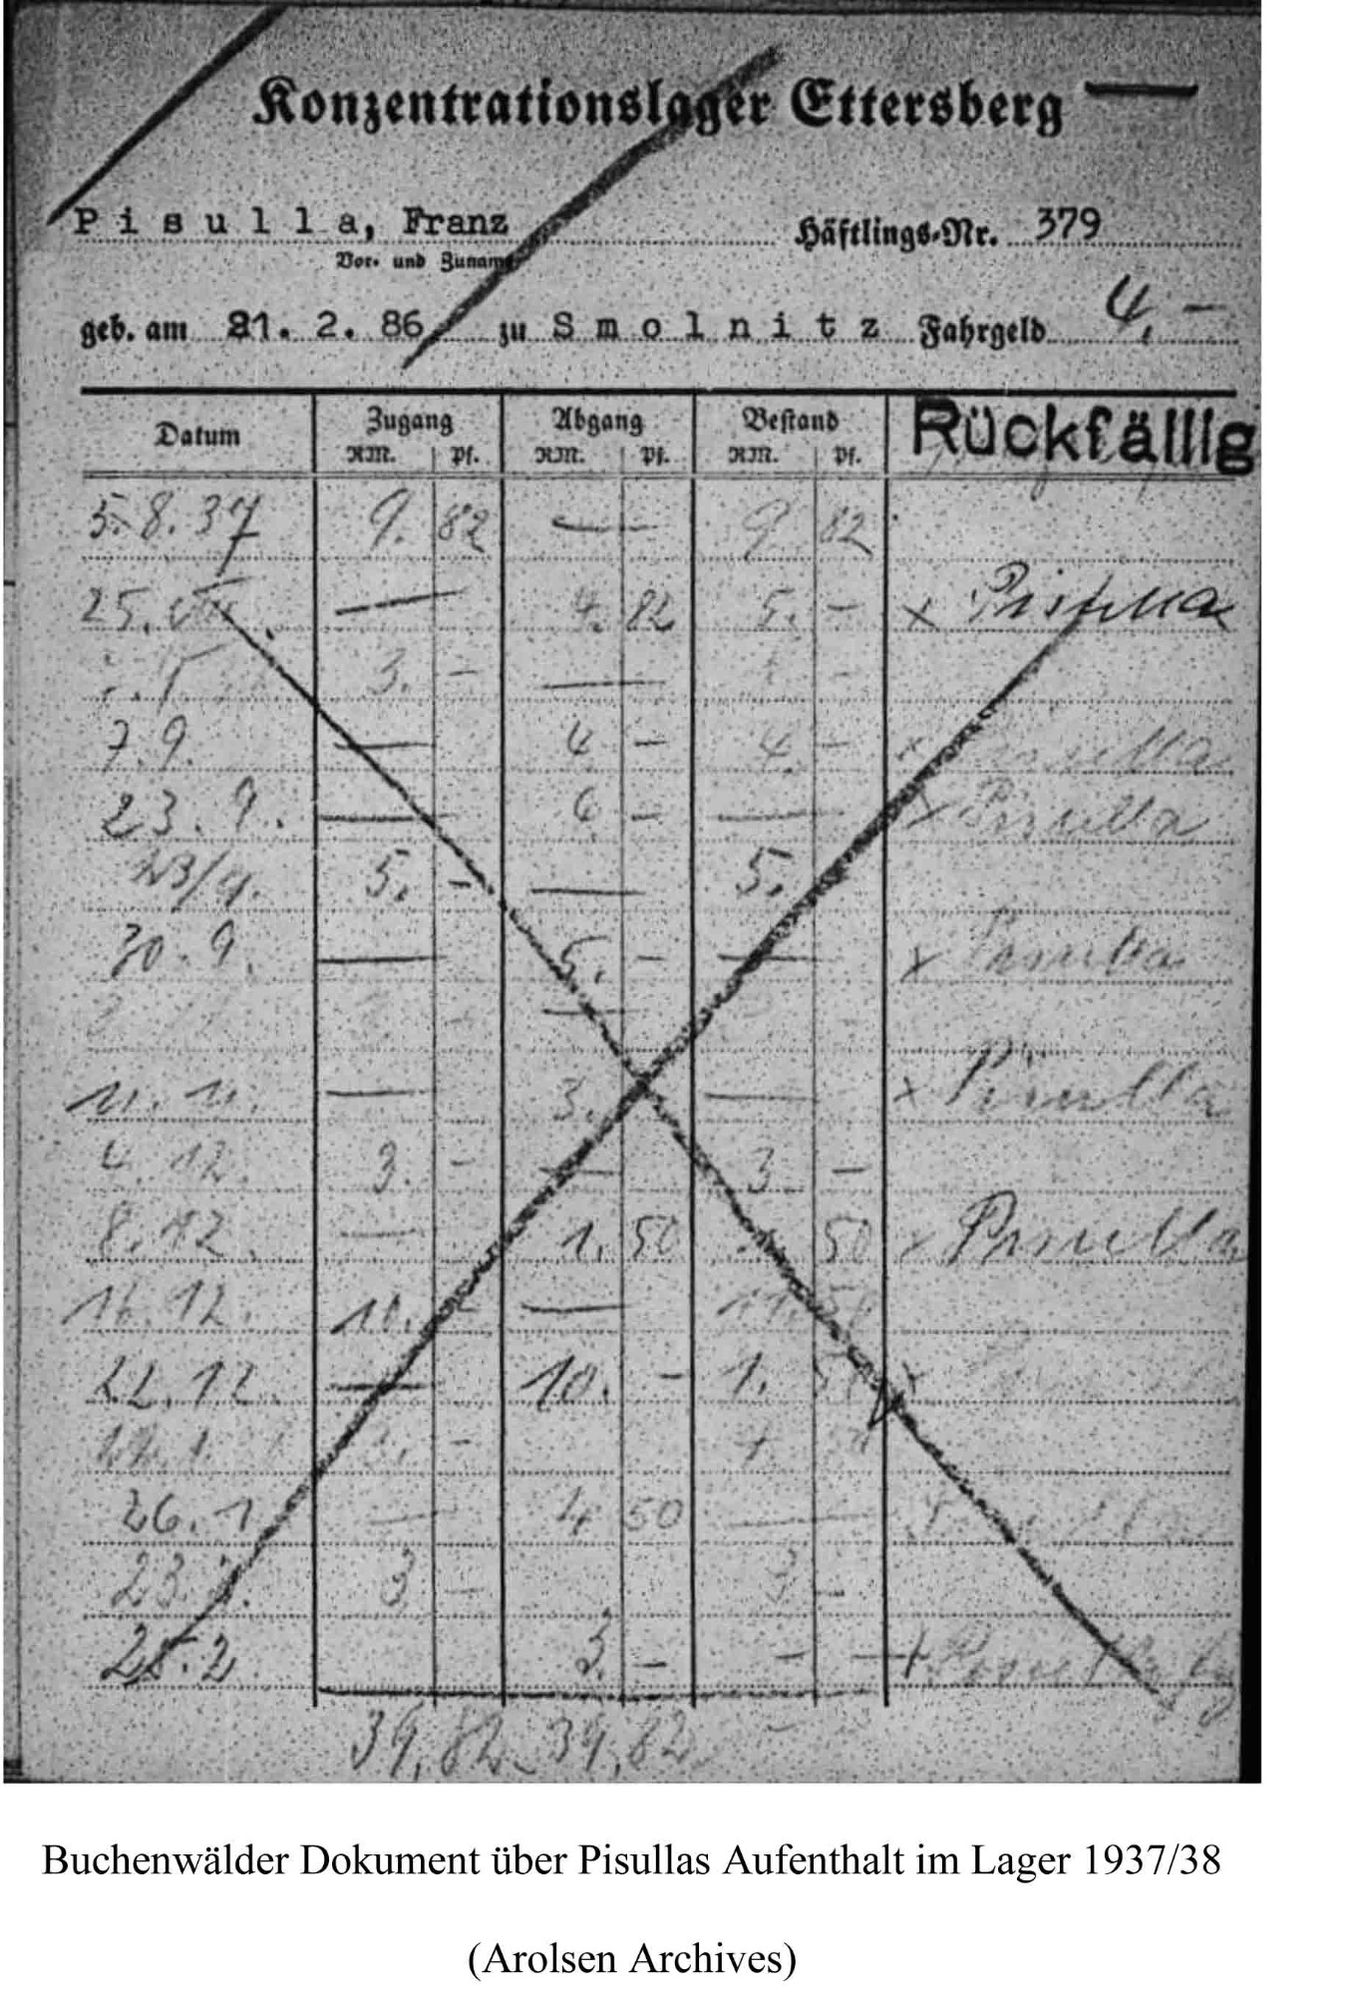 Konzentrationslager Ettersberg
Pisulla, Franz Häftlings-Nr. 379
Vor- und Zuname
geb. am 21. 2. 86 zu Smolnitz Fahrgeld 4,-
Datum Zugang Abgang Bestand Rückfällig
RM. Pf. RM. Pf. RM. Pf.
5.8.37 9. 82 — - 9 82
25. — 4. 82 5. - x Pisulla
3. - —
7.9. — 4 - 4. - Pisulla
23.9. — 4 - — x Pisulla
23/9. 5. - — 5.
30.9. — 5. - — x Pisulla
11.11. — 3. — x Pisulla
4.12. 3. - — 3 -
8.12. — 1. 50 50 x Pisulla
16.12. 10. - —
22.12. — 10. - 1. x
26.1 — 4 50 —
23. 3 - 3 -
25.2 3. - - — + Pisulla
39,82 39,82
Buchenwälder Dokument über Pisullas Aufenthalt im Lager 1937/38
(Arolsen Archives)